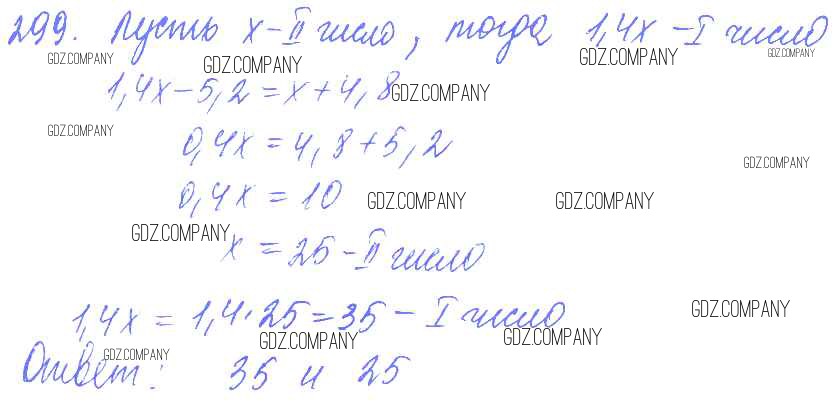 299. Пусть x - II число, тогда 1,4x - I число
GDZ.COMPANY GDZ.COMPANY GDZ.COMPANY GDZ.COMPANY
1,4x - 5,2 = x + 4,8 GDZ.COMPANY
GDZ.COMPANY 0,4x = 4,8 + 5,2
GDZ.COMPANY
0,4x = 10 GDZ.COMPANY GDZ.COMPANY
GDZ.COMPANY x = 25 - II число
1,4x = 1,4 · 25 = 35 - I число GDZ.COMPANY
GDZ.COMPANY GDZ.COMPANY
Ответ: 35 и 25
GDZ.COMPANY